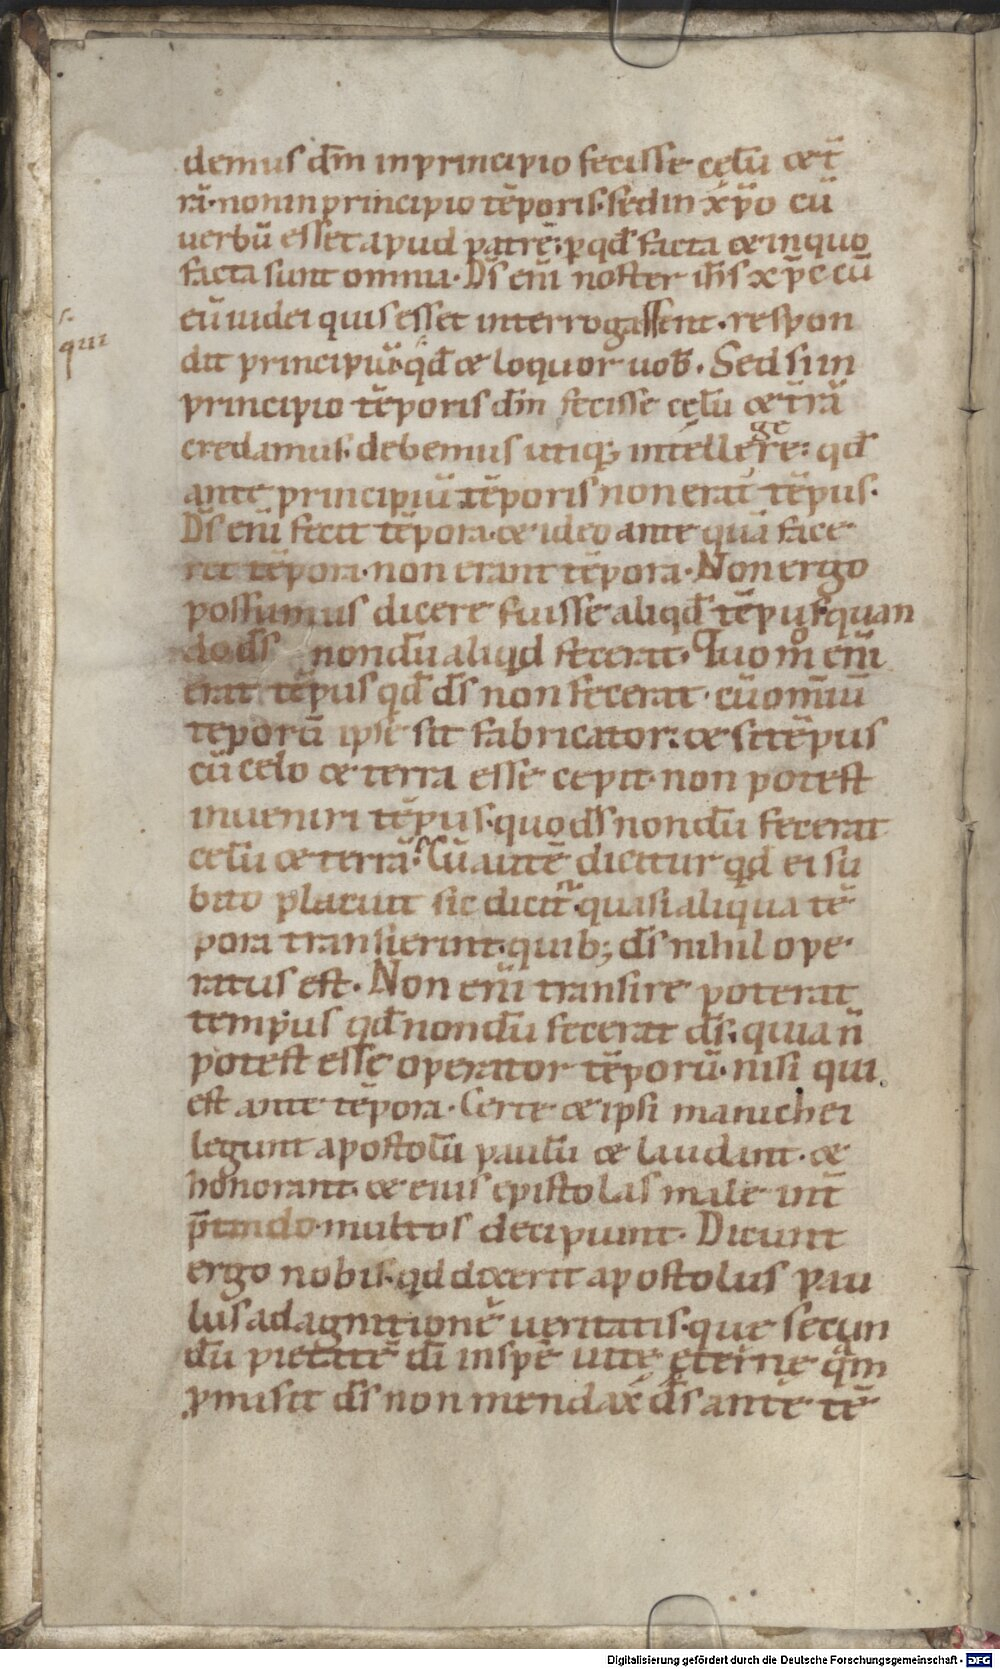 demus dm̄ in principio fecisse cęlū & t̄
rā· non in principio tēporis· sed in xp̄o cū
uerbū esset apud patrē· ꝑ qd̄ facta & in quo
facta sunt omnia· Ds̄ enī noster ih̄s xp̄c cū
eū iudei quis esset interrogassent· respon
dit principiū· qd̄ & loquor uob̄· Sed si in
principio tēporis dm̄ fecisse cęlū & t̄rā
credamus· debemus utiq; intellegere· qd̄
ante principiū tēporis non erat tēpus·
Ds̄ enī fecit tēpora· & ideo ante quā face
ret tēpora· non erant tēpora· Non ergo
possumus dicere fuisse aliqd̄ tēpus quan
do ds̄ nondū aliqd fecerat· Quom̊ enī
erat tēpus qd̄ ds̄ non fecerat· cū omniū
tēporū ipse sit fabricator· & si tēpus
cū celo & terra esse cepit· non potest
inueniri tēpus· quo ds̄ nondū fecerat
celū & terrā· Cū autē dicitur qd ei su
bito placuit sic dicit᷑· quasi aliqua tē
pora transierint· quib; ds̄ nihil ope
ratus est· Non enī transire poterat
tempus qd̄ nondū fecerat ds̄· quia n̄
potest esse operator tēporū· nisi qui
est ante tēpora· Certe & ipsi manichei
legunt apostolū paulū & laudant· &
honorant· & eius epistolas male int̄
p̄tando· multos decipiunt· Dicunt
ergo nobis· qd dixerit apostolus pau
lus ad agnitionē ueritatis· que secun
dū pietatē di in spē uitę ęternę q̄m
ꝓmisit ds̄ non mendax ds̄ ante tē
Digitalisierung gefördert durch die Deutsche Forschungsgemeinschaft - DFG